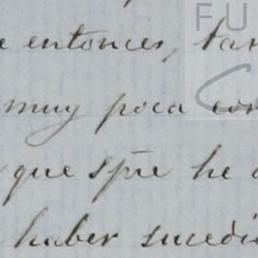 e entonces, tan
muy poca con
que spre he
haber sucedi